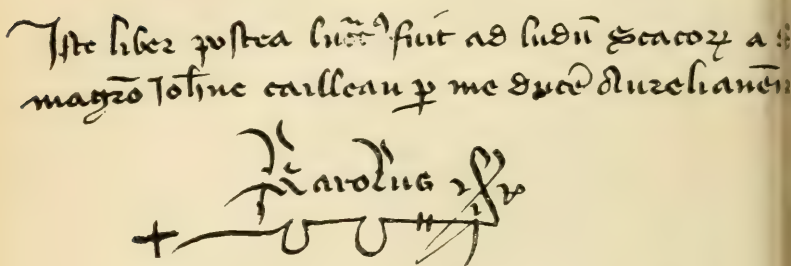 Iste liber postea lucrat⁹ fuit ad ludū scacoꝝ a
magrō Johīne cailleau ꝑ me ducē Aurelianēn
Karolus